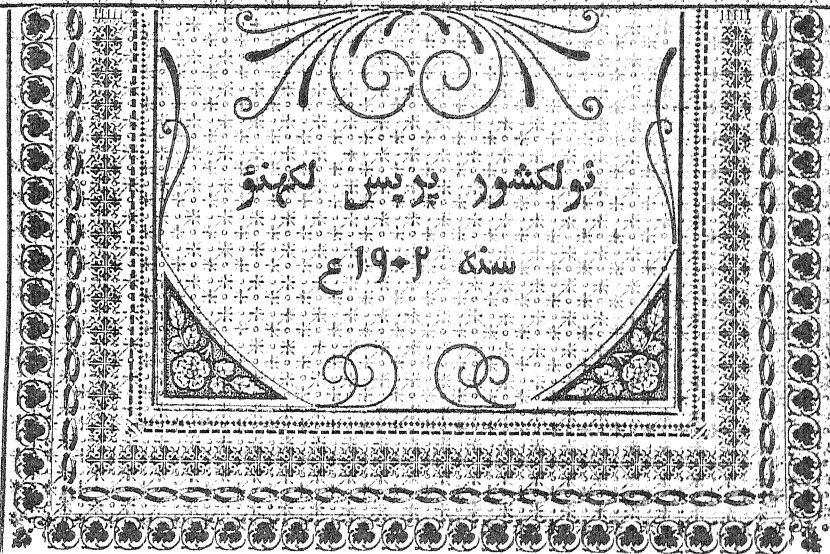 نولکشور پریس لکهنؤ
سنه ۱۹۰۲ع